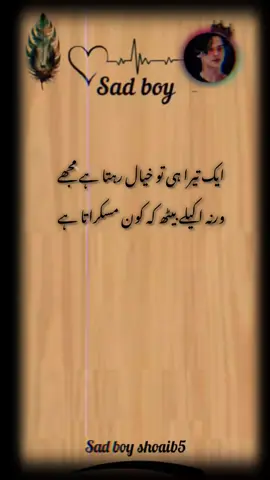 Sad boy
ایک تیرا ہی تو خیال رہتا ہے مجھے
ورنہ اکیلے بیٹھ کہ کون مسکراتا ہے
Sad boy shoaib5